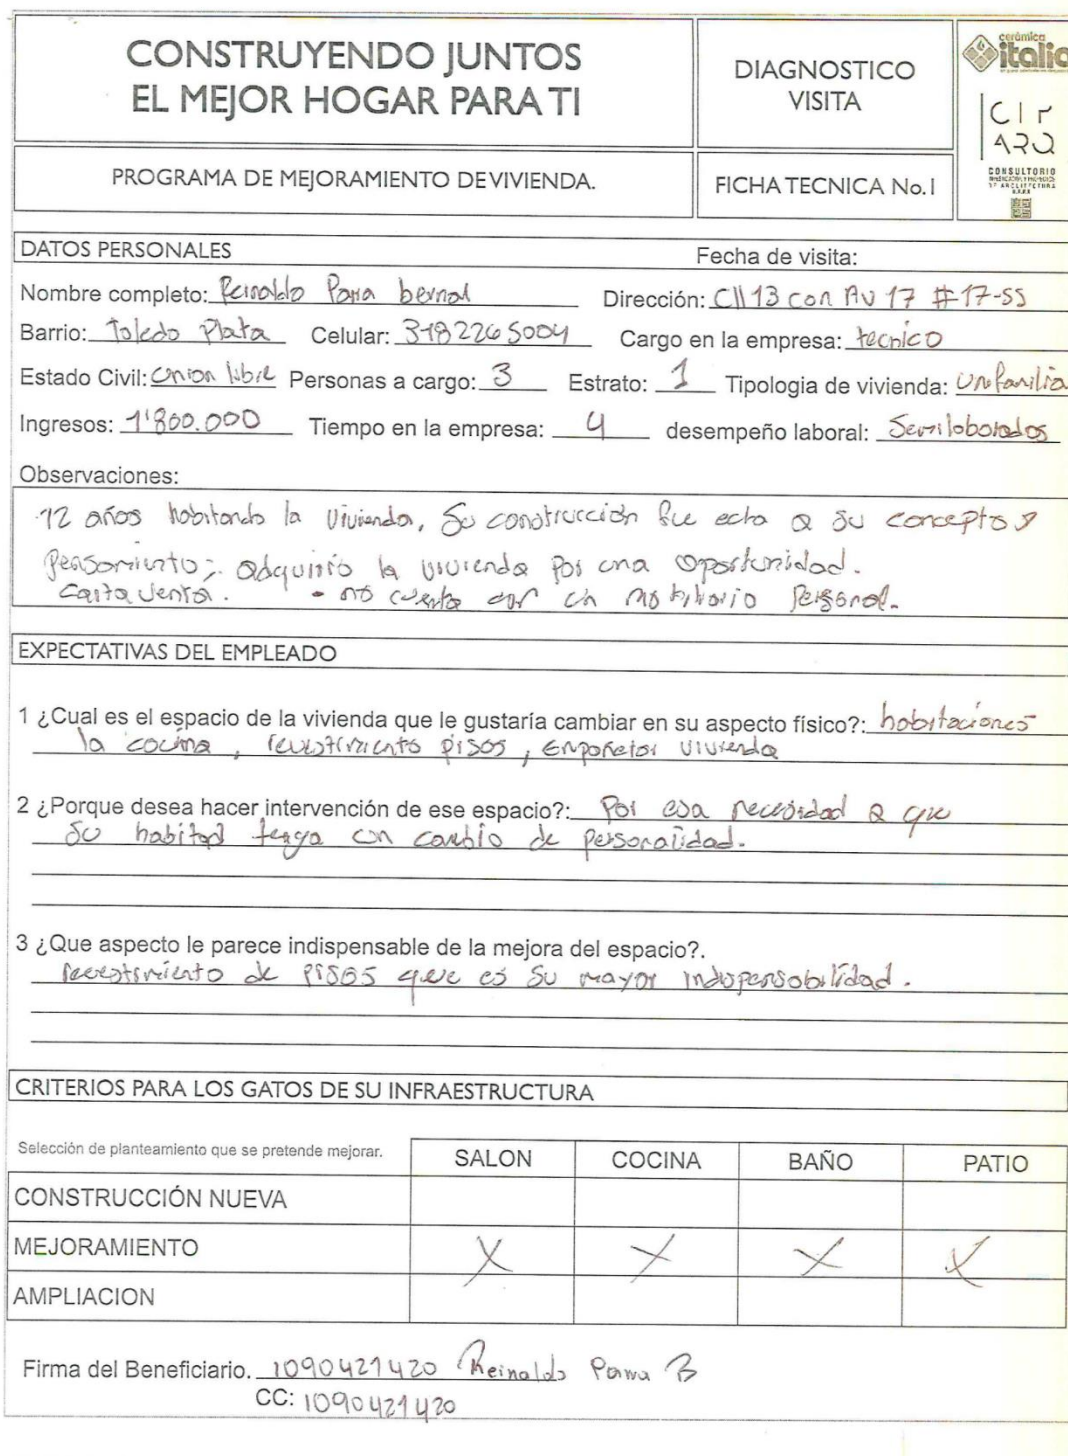 CONSTRUYENDO JUNTOS
EL MEJOR HOGAR PARA TI
DIAGNOSTICO
VISITA
cerámica
italia
CIRARQ
CONSULTORIO
PROGRAMA DE MEJORAMIENTO DE VIVIENDA.
FICHA TECNICA No. 1
DATOS PERSONALES
Fecha de visita:
Nombre completo: Reinaldo Parra bernal Dirección: Cll 13 con AV 17 #17-55
Barrio: Toledo Plata Celular: 3182265004 Cargo en la empresa: tecnico
Estado Civil: Union libre Personas a cargo: 3 Estrato: 1 Tipologia de vivienda: Unifamilia
Ingresos: 1'800.000 Tiempo en la empresa: 4 desempeño laboral:
Observaciones:
12 años habitando la vivienda, Su construcción fue echa a su concepto y
Pensamiento; adquirio la vivienda Por una oportunidad.
Carta Venta. - no cuenta con un mobiliario Personal.
EXPECTATIVAS DEL EMPLEADO
1 ¿Cual es el espacio de la vivienda que le gustaría cambiar en su aspecto físico?: habitaciones
la cocina, revestimiento pisos, Empañetar vivienda
2 ¿Porque desea hacer intervención de ese espacio?: Por esa necesidad a que
Su habitad tenga un cambio de personalidad.
3 ¿Que aspecto le parece indispensable de la mejora del espacio?.
revestimiento de PISOS que es Su mayor indispensabilidad.
CRITERIOS PARA LOS GATOS DE SU INFRAESTRUCTURA
Selección de planteamiento que se pretende mejorar. SALON COCINA BAÑO PATIO
CONSTRUCCIÓN NUEVA
MEJORAMIENTO X X X X
AMPLIACION
Firma del Beneficiario. 1090421420 Reinaldo Parra B
CC: 1090421420